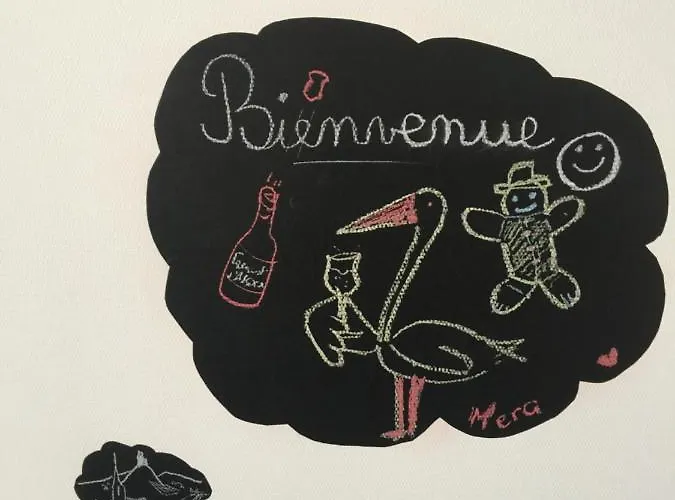 Bienvenue
d'Alsace
Merci